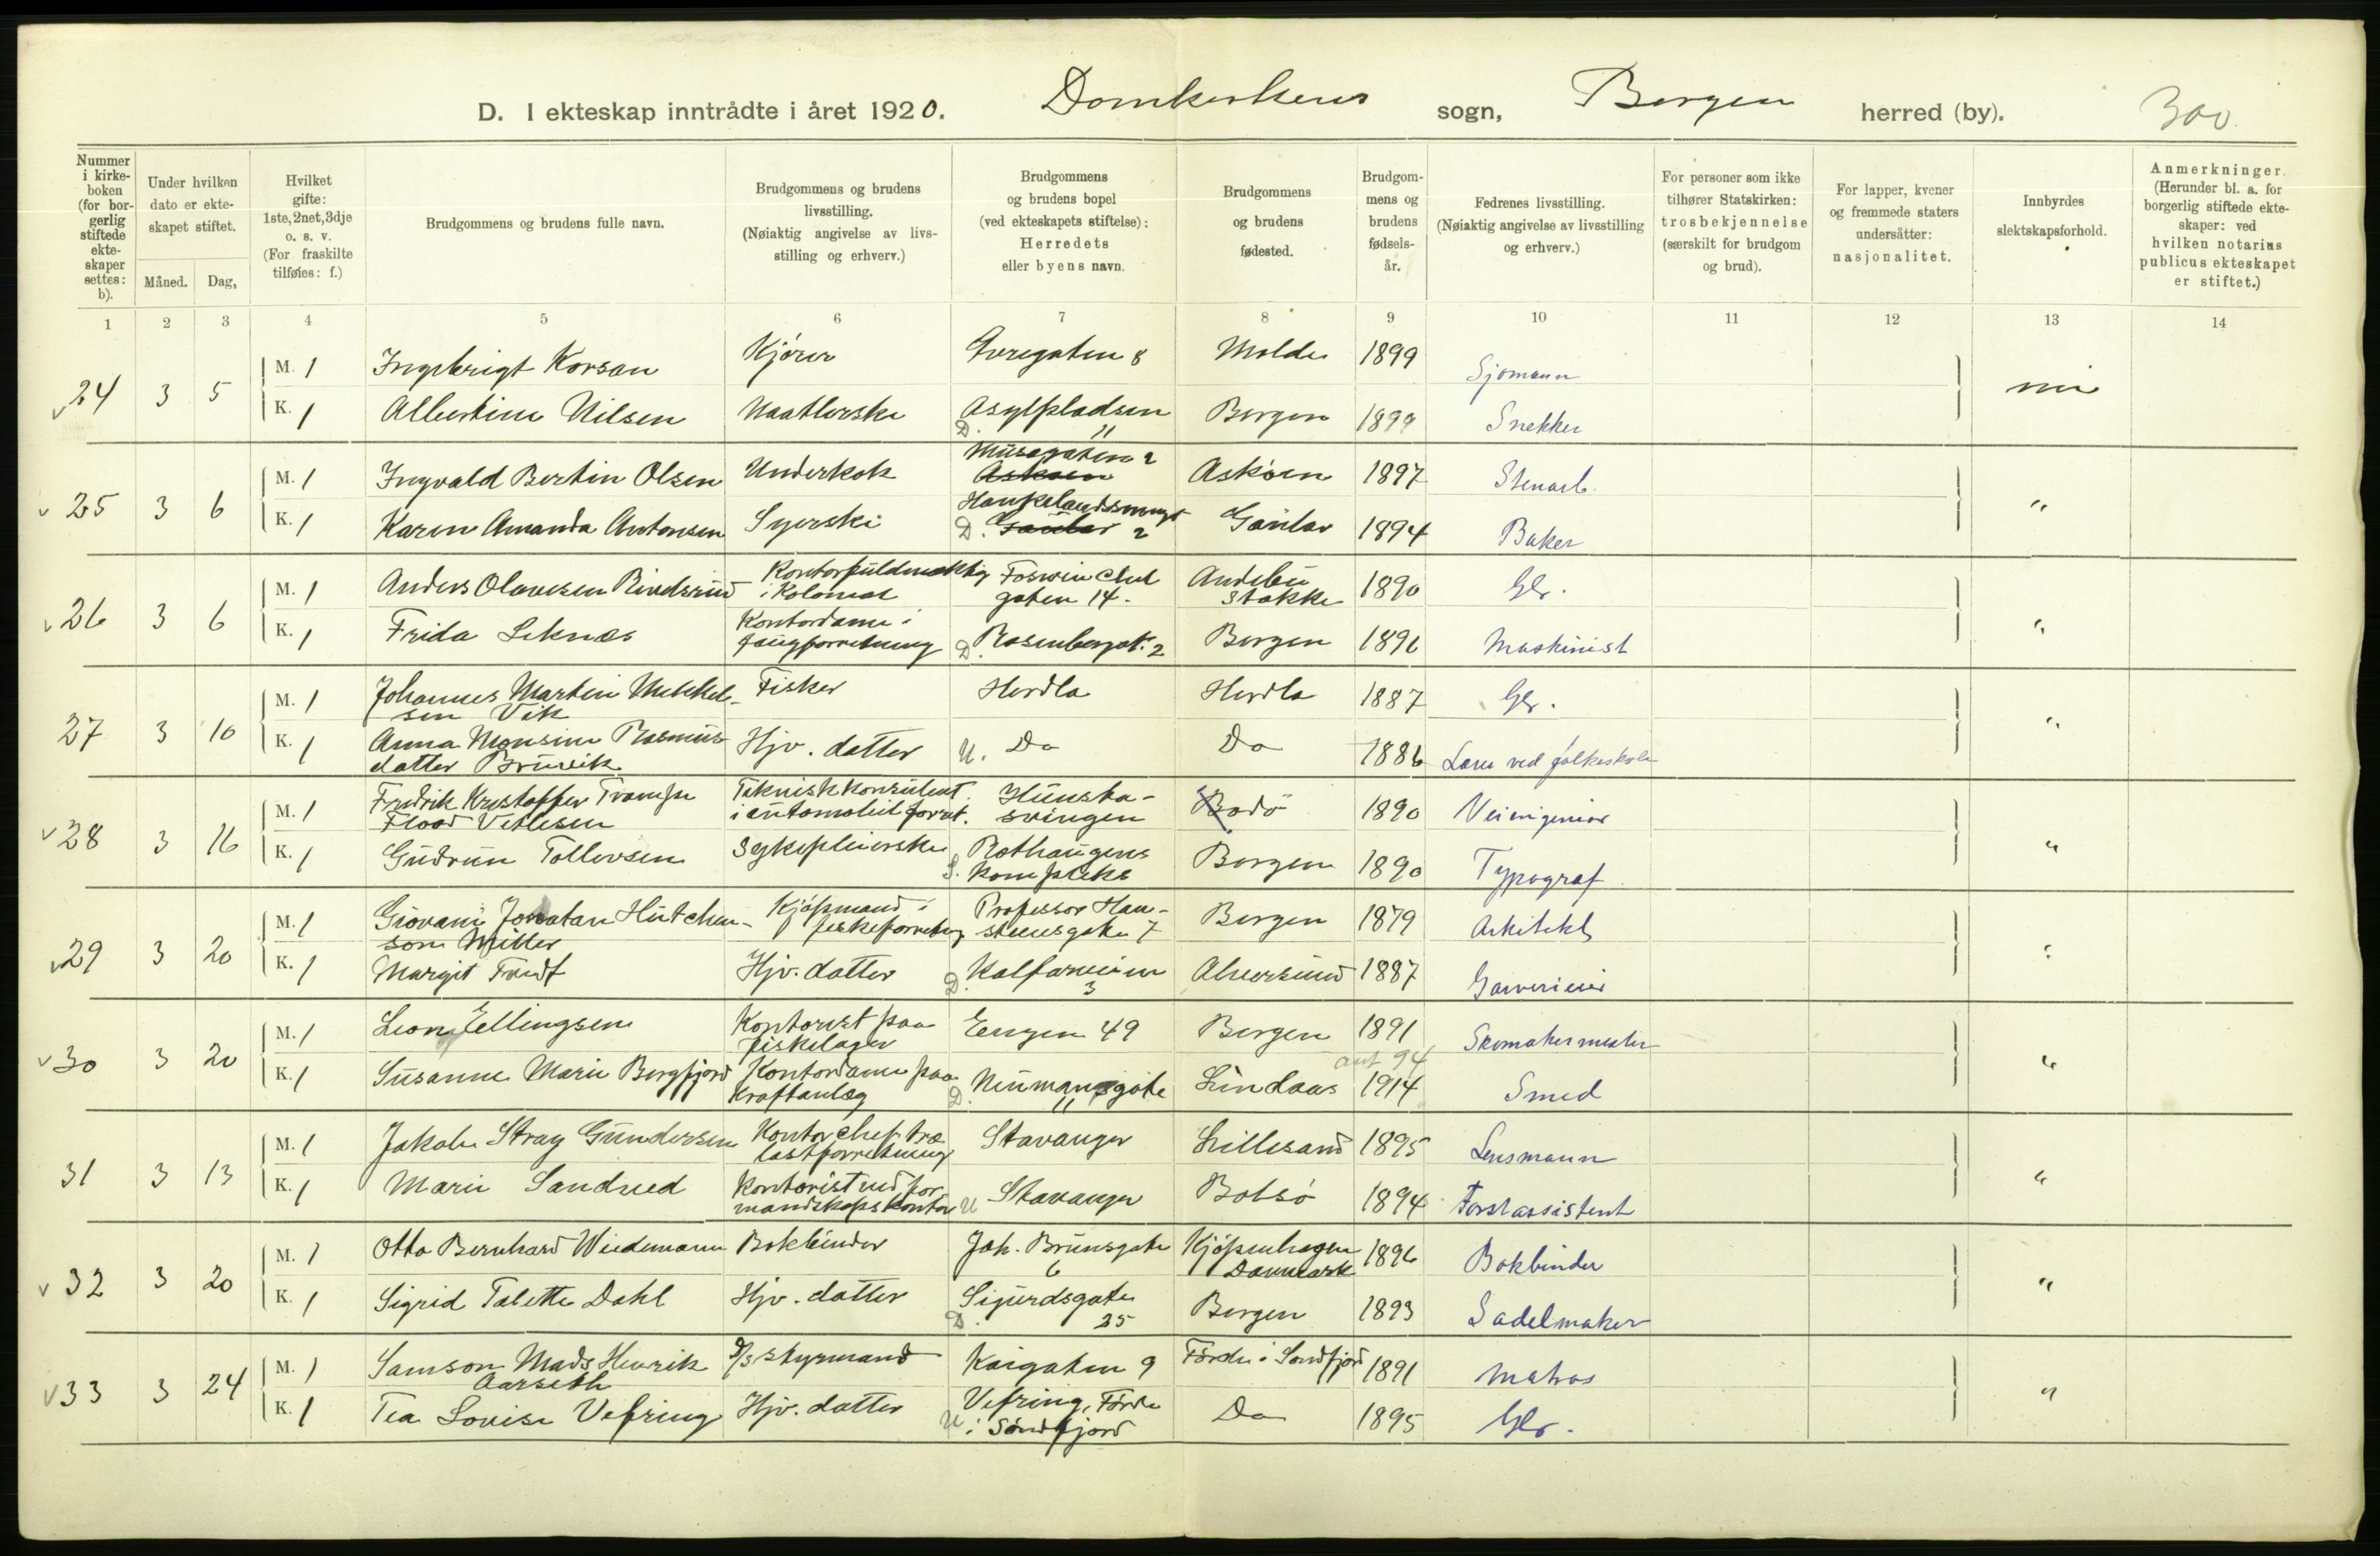 D. I ekteskap inntrådte i året 1920. Domkirkens sogn, Bergen herred (by). 300
Nummer i kirkeboken (for borgerlig stiftede ekteskaper settes: b).
Under hvilken dato er ekteskapet stiftet.
Måned. Dag,
Hvilket gifte: 1ste, 2net, 3dje o. s. v. (For fraskilte tilføies: f.)
Brudgommens og brudens fulle navn.
Brudgommens og brudens livsstilling. (Nøiaktig angivelse av livsstilling og erhverv.)
Brudgommens og brudens bopel (ved ekteskapets stiftelse): Herredets eller byens navn.
Brudgommens og brudens fødested.
Brudgommens og brudens fødselsår.
Fedrenes livsstilling. (Nøiaktig angivelse av livsstilling og erhverv.)
For personer som ikke tilhører Statskirken: trosbekjennelse (særskilt for brudgom og brud).
For lapper, kvener og fremmede staters undersåtter: nasjonalitet.
Innbyrdes slektskapsforhold.
Anmerkninger. (Herunder bl. a. for borgerlig stiftede ekteskaper: ved hvilken notarius publicus ekteskapet er stiftet.)
1 2 3 4 5 6 7 8 9 10 11 12 13 14
v 24 3 5 M. 1 Ingebrigt Korsan Kjører Øvregaten 8 Molde 1899 Sjømann nei
K. 1 Albertine Nilsen Naatlerske D. Asylpladsen 11 Bergen 1899 Snekker
v 25 3 6 M. 1 Ingvald Bertin Olsen Underkok Musegaten 2 Askøen Askøen 1897 Stenarb. "
K. 1 Karen Amanda Antonsen Syerske D. Haukelandssmuget 2 Gaular Gaular 1894 Baker
v 26 3 6 M. 1 Anders Olavesen Rindsrud Kontorfuldmektig i kolonial Foswinckel gaten 14. Andebu Stokke 1890 Gbr. "
K. 1 Frida Leknes Kontordame i faugforretning D. Rosenberggt. 2 Bergen 1896 Maskinist
27 3 10 M. 1 Johannes Martin Mikkelsen Vik Fisker Herdla Herdla 1887 Gbr. "
K. 1 Anna Monsine Rasmusdatter Bruvik Hjv. datter U. Do Do 1886 Lærer ved folkeskole
v 28 3 16 M. 1 Fredrik Kristoffer Trampe Flood Vetlesen Teknisk konsulent i automobilforret. Hunstasvingen Bodø 1890 Veiingeniør "
K. 1 Gudrun Tollevsen Sykepleierske S. Rothaugens kompleks Bergen 1890 Typograf
v 29 3 20 M. 1 Giovani Jonatan Hutchenson Miller Kjøpmand i fiskeforretning Professor Hansteensgate 7 Bergen 1879 Arkitekt "
K. 1 Margit Tvedt Hjv. datter D. Kalfarveien 3 Alversund 1887 Garverieier
v 30 3 20 M. 1 Leon Ellingsen Kontorist paa fiskelager Engen 49 Bergen 1891 Skomakermester "
K. 1 Susanne Marie Bergfjord Kontordame paa kraftanlæg D. Neumannsgate 11 Lindaas ant 94 1914 Smed
31 3 13 M. 1 Jakob Stray Gundersen Kontorchef trælastforretning Stavanger Lillesand 1895 Lensmann "
K. 1 Marie Sandved Kontorist ved formandskapskontor U Stavanger Bolsø 1894 Forstassistent
v 32 3 20 M. 1 Otto Bernhard Wiedemann Bokbinder Joh. Brunsgate 6 Kjøpenhagen Danmark 1896 Bokbinder "
K. 1 Sigrid Tabette Dahl Hjv. datter D. Sigurdsgate 25 Bergen 1893 Sadelmaker
v 33 3 24 M. 1 Samson Mads Henrik Aarseth D/S styrmand Kaigaten 9 Førde i Søndfjord 1891 Matros "
K. 1 Tea Lovise Vefring Hjv. datter U Vefring, Førde i Søndfjord Do 1895 Gbr.